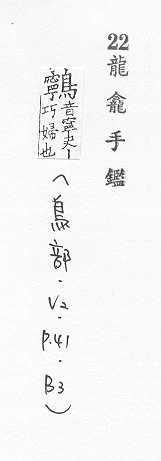 22龍龕手鑑
音寧
寧巧婦也
(鳥部.V2.P.41.B3)